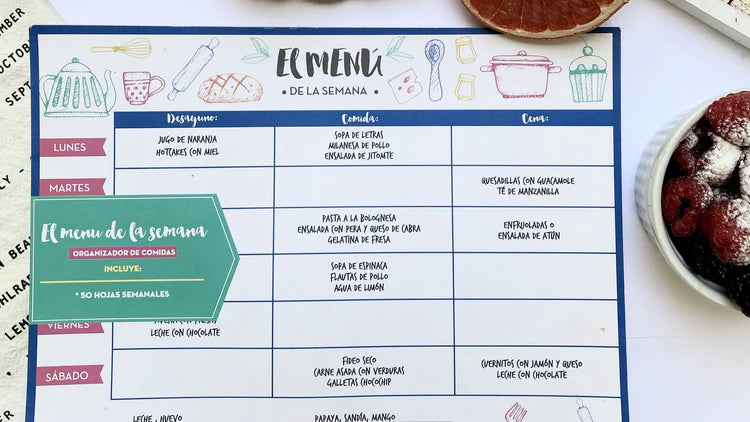 EL MENÚ
• DE LA SEMANA •
Desayuno:
Comida:
Cena:
LUNES
JUGO DE NARANJA
HOTCAKES CON MIEL
SOPA DE LETRAS
MILANESA DE POLLO
ENSALADA DE JITOMTE
MARTES
QUESADILLAS CON GUACAMOLE
TÉ DE MANZANILLA
El menu de la semana
ORGANIZADOR DE COMIDAS
INCLUYE:
* 50 HOJAS SEMANALES
PASTA A LA BOLOGNESA
ENSALADA CON PERA Y QUESO DE CABRA
GELATINA DE FRESA
ENFRIJOLADAS O
ENSALADA DE ATÚN
SOPA DE ESPINACA
FLAUTAS DE POLLO
AGUA DE LIMÓN
VIERNES
LECHE CON CHOCOLATE
SÁBADO
FIDEO SECO
CARNE ASADA CON VERDURAS
GALLETAS CHOCOCHIP
CUERNITOS CON JAMÓN Y QUESO
LECHE CON CHOCOLATE
LECHE , HUEVO
PAPAYA, SANDÍA, MANGO